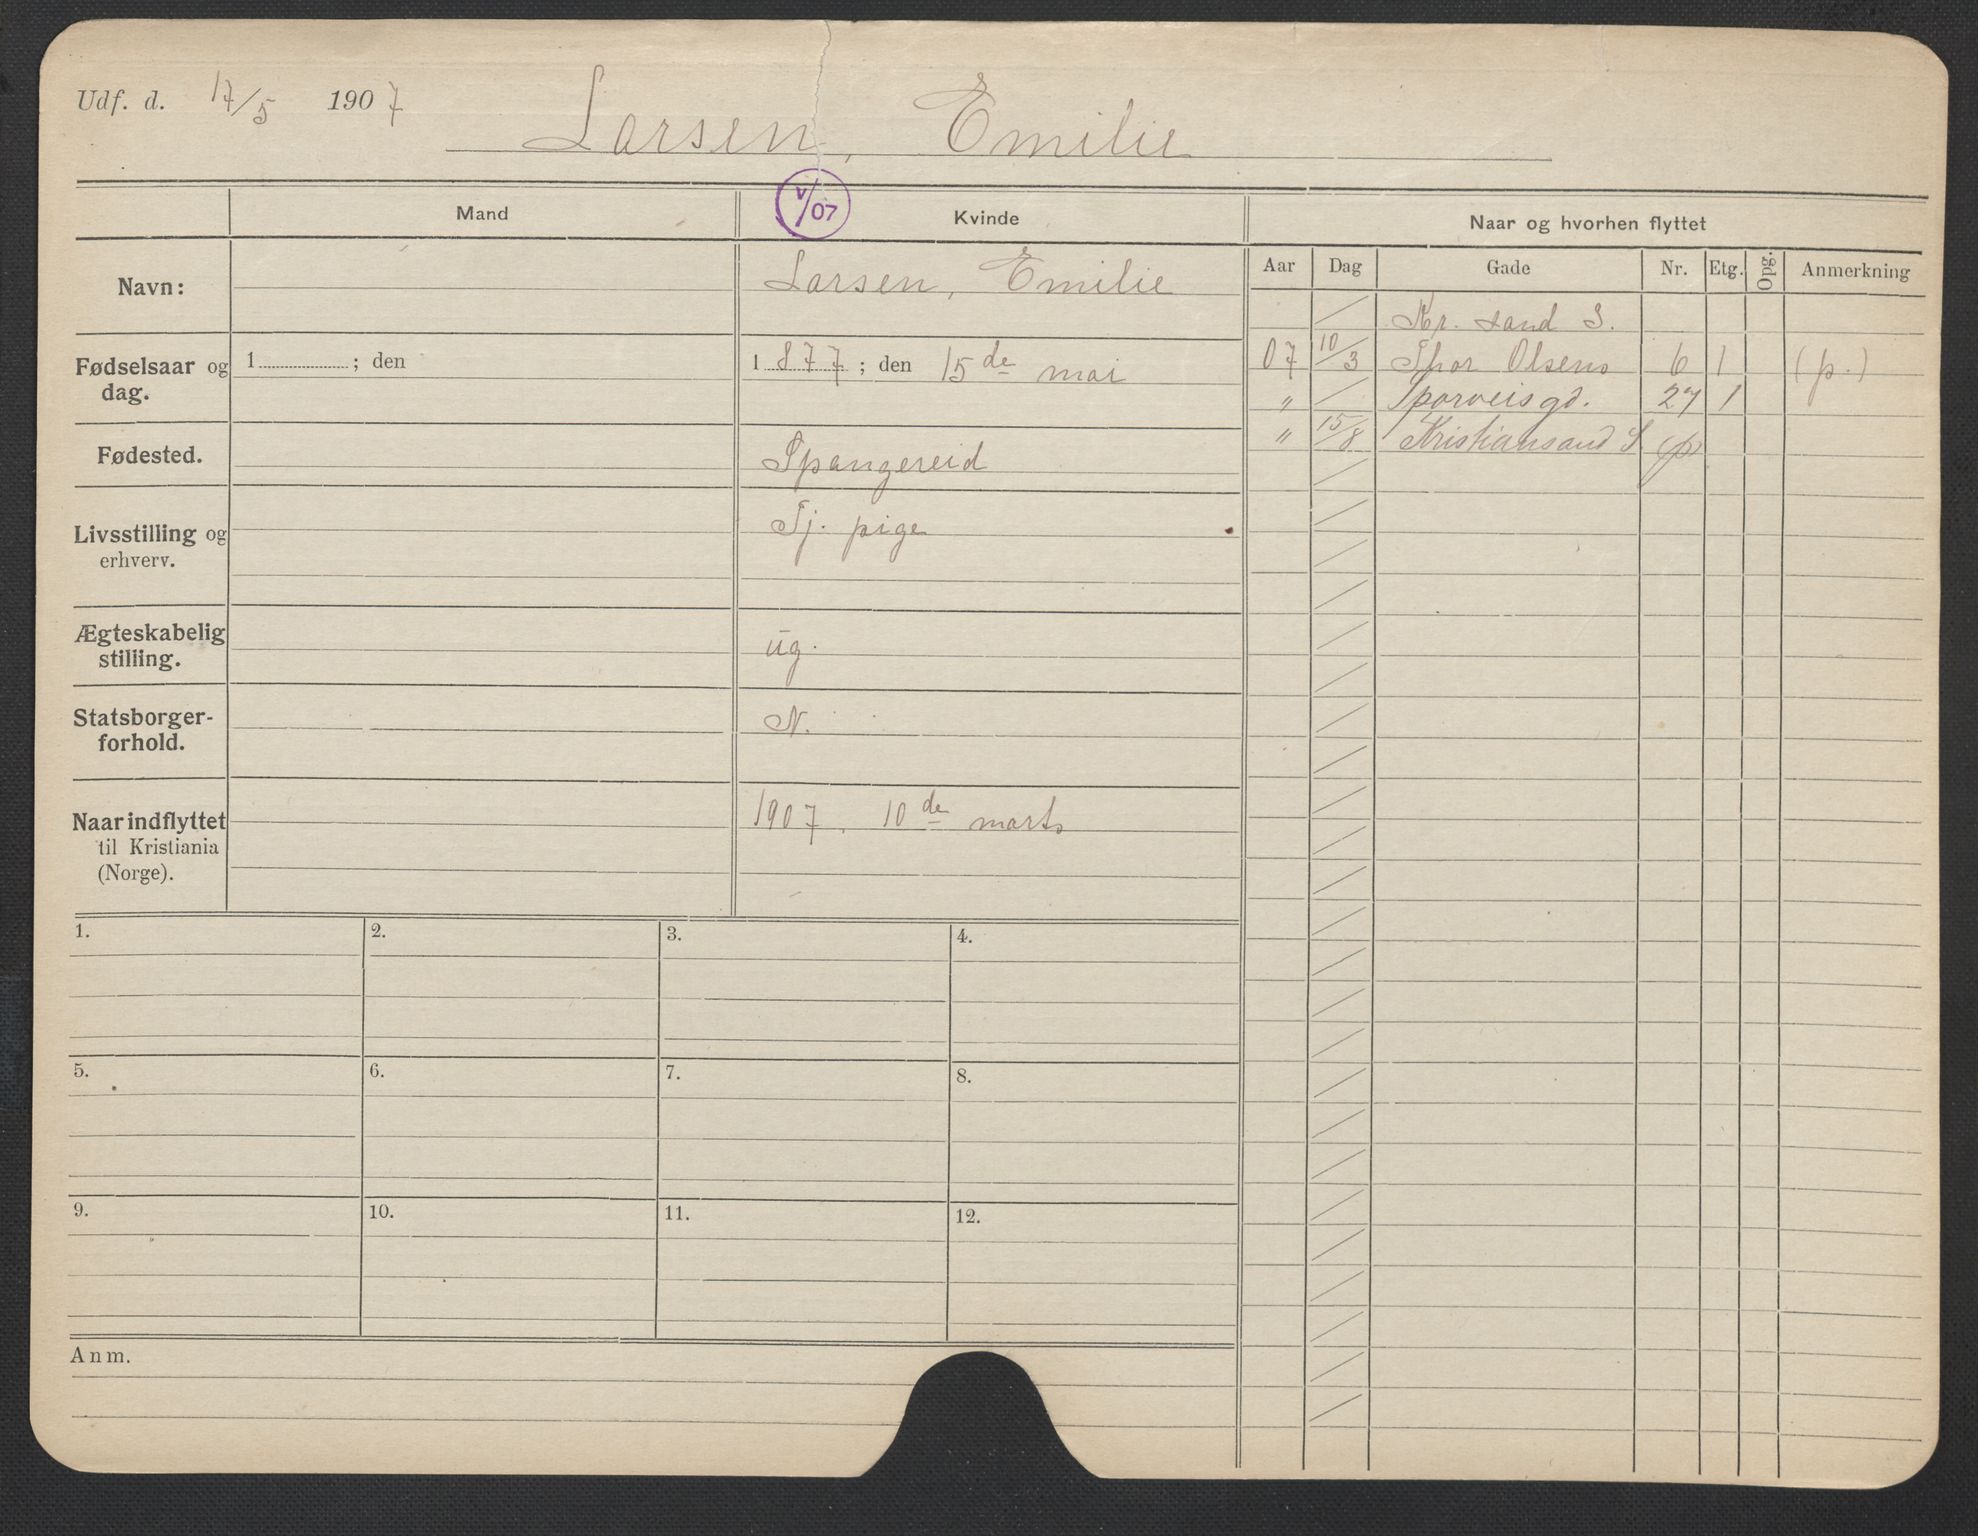 Udf. d. 17/5 1907
Larsen, Emilie
Mand
V/07
Kvinde
Naar og hvorhen flyttet
Aar Dag Gade Nr. Etg. Opg. Anmerkning
Navn:
Larsen, Emilie
Kr. sand S.
Fødselsaar og
dag.
1 ; den
1877; den 15de mai
07 10/3 Thor Olsens 6 1 (p.)
" Sporveisgd. 27 1
" 15/8 Kristiansand S. (p)
Fødested.
Spangereid
Livsstilling og
erhverv.
Tj. pige
Ægteskabelig
stilling.
ug.
Statsborger-
forhold.
N.
Naar indflyttet
til Kristiania
(Norge).
1907. 10de marts
1. 2. 3. 4.
5. 6. 7. 8.
9. 10. 11. 12.
Anm.